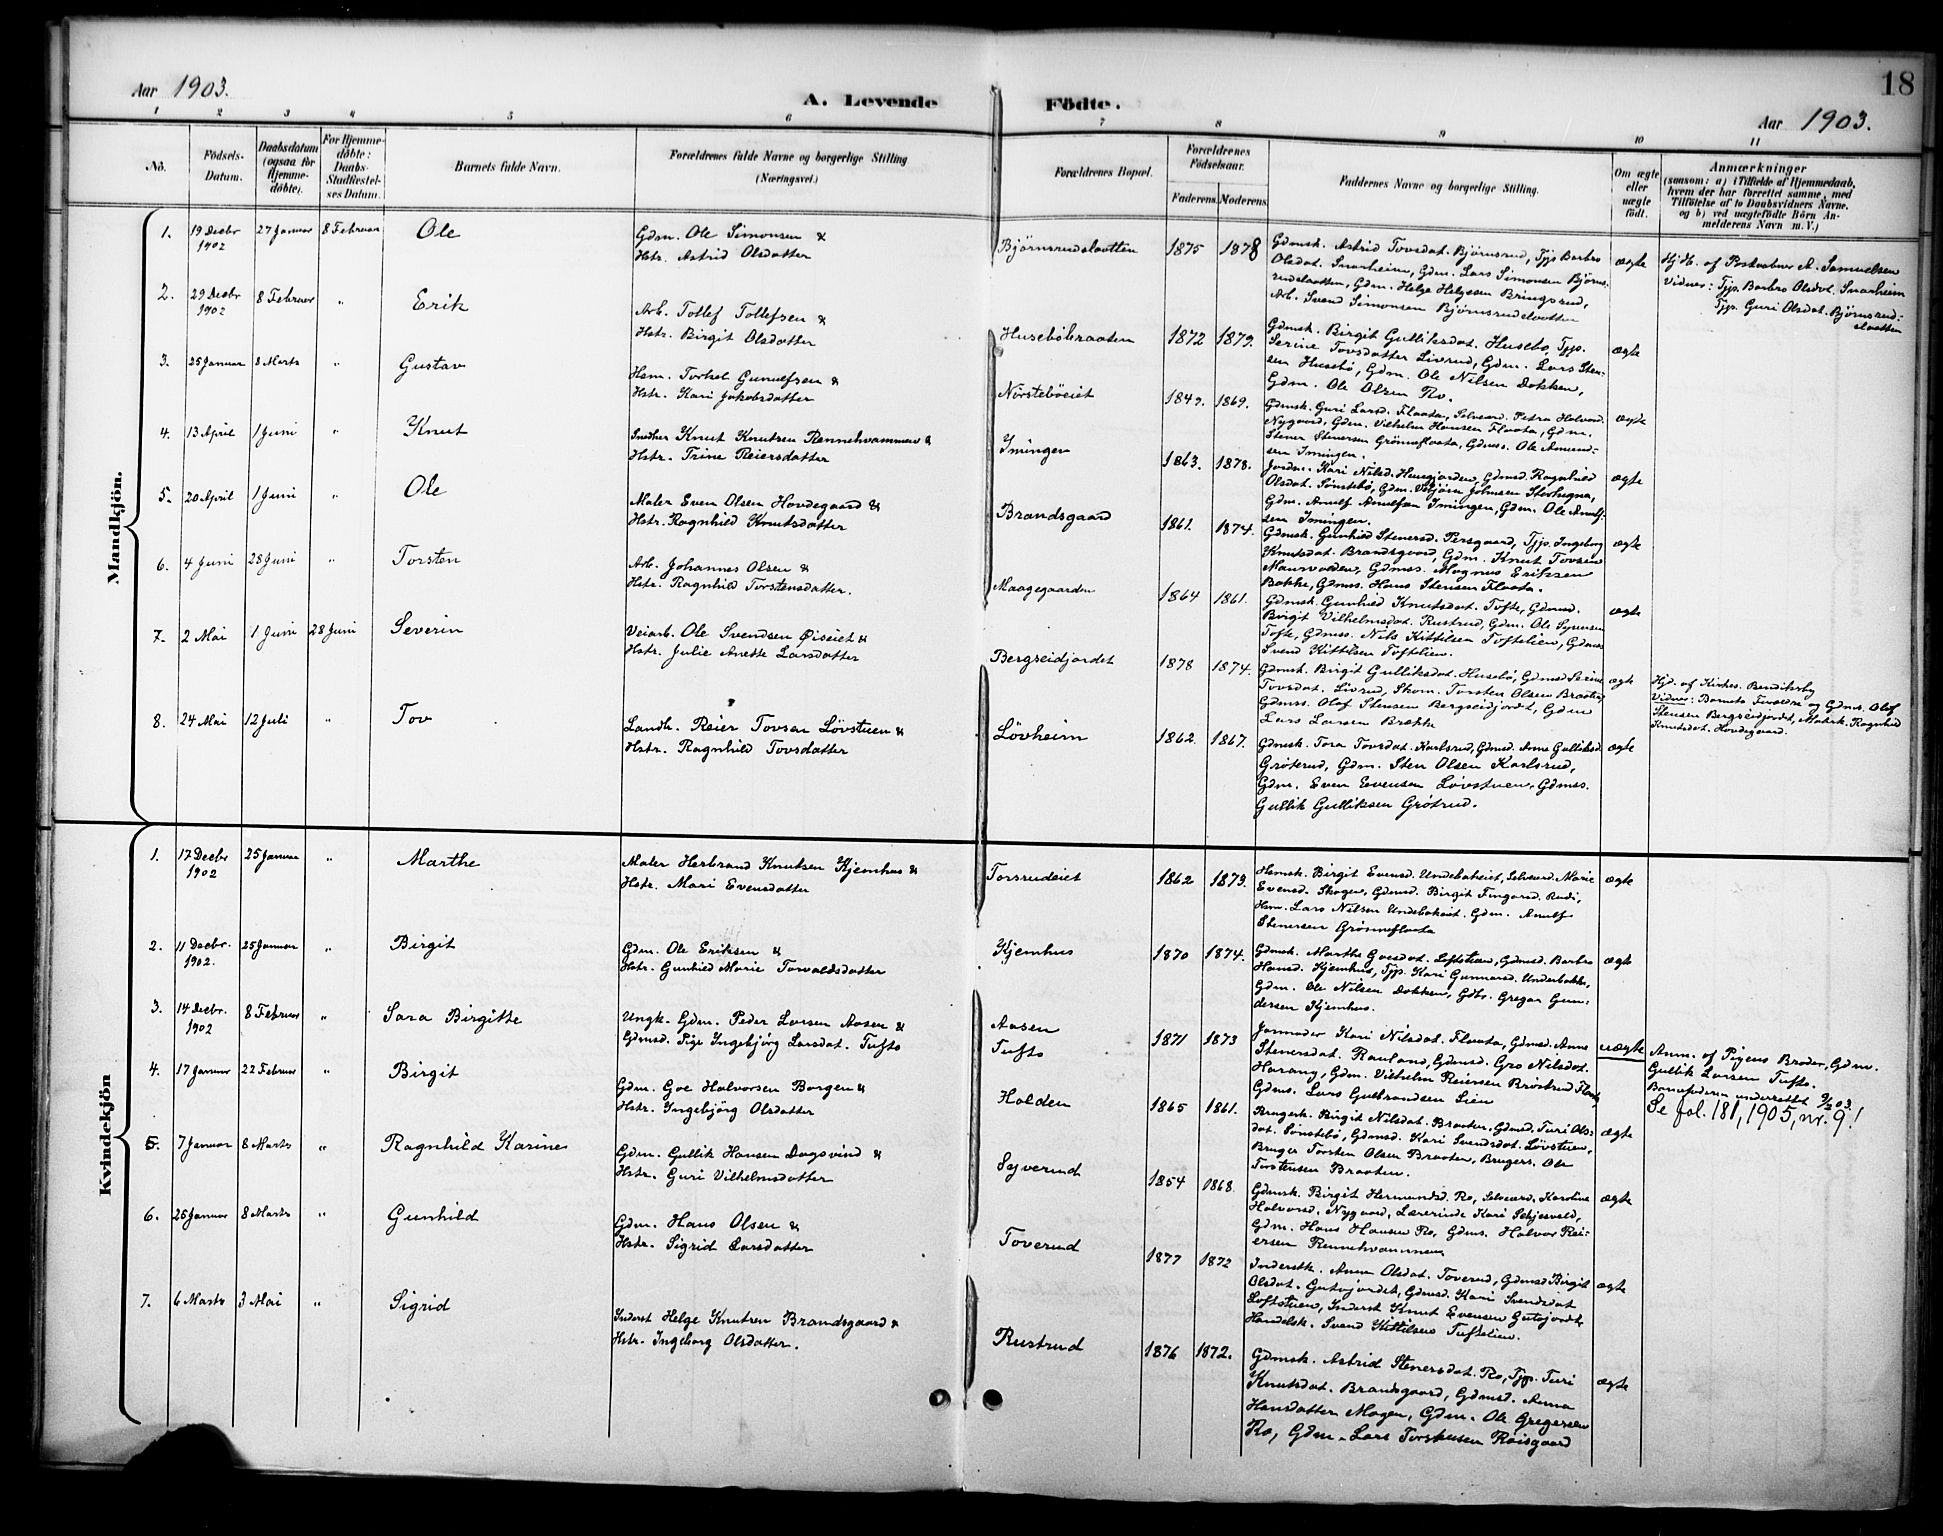 Aar 1903.
A. Levende
Födte.
Aar 1903.
18
1 2 3 4 5 6 7 8 9 10 11
No.
Födsels-
Datum.
Daabsdatum
(ogsaa för
Hjemme-
döbte).
For Hjemme-
döbte:
Daabs-
Stadfæstel-
ses Datum.
Barnets fulde Navn.
Forældrenes fulde Navne og borgerlige Stilling
(Næringsvei.)
Forældrenes Bopæl.
Forældrenes
Födselsaar.
Faderens. Moderens.
Faddernes Navne og borgerlige Stilling.
Om ægte
eller
uægte
födt.
Anmærkninger
(saasom: a) i Tilfælde af Hjemmedaab,
hvem der har forrettet samme, med
Tilföielse af to Daabsvidners Navne.
og b) ved uægtefödte Börn An-
melderens Navn m. V.)
Mandkjön.
1. 19 Decbr 1902 27 Januar 8 Februar Ole
Gdm. Ole Simonsen &
Hstr. Astrid Olsdatter
Bjørnsrudslaatten 1875 1878
Gdmsk. Astrid Tovsdat. Bjørnsrud, Tjp Barbro
Olsdat. Snarheim, Gdm. Lars Simonsen Bjørns-
rudslaatten, Gdm. Helge Helgesen Bringsrud,
Arb. Svend Simonsen Bjørnsrudslaatten
ægte
Hjd. af Postaabner A. Samuelsen
Vidner: Tjp. Barbro Olsdat. Snarheim
Tjp. Guri Olsdat. Bjørnsrud-
slaatten
2. 29 Decbr 1902 8 Februar " Erik
Arb. Tollef Tollefsen &
Hstr. Birgit Olsdatter
Husebøbraaten 1872 1879.
Gdmsk. Birgit Gulliksdat. Husebø, Tjp.
Serine Tovsdatter Livrud, Gdm. Lars Sten-
sen Husebø, Gdm. Ole Nilsen Dokken,
Gdm. Ole Olsen Ro.
ægte
3. 25 Januar 8 Marts " Gustav
Hsm. Torkel Gunulfsen &
Hstr. Kari Jakobsdatter
Nørstebøeiet 1849. 1869.
Gdmsk. Guri Larsd. Flaata, Selveierd. Petra Halvord.
Nygaard, Gdm. Vilhelm Hansen Flaata, Gdm.
Stener Stenersen Grønneflaata, Gdmss. Ole Amund-
sen Imingen.
ægte
4. 13 April 1 Juni " Knut
Snedker Knut Knutsen Rennehvammen &
Hstr. Trine Reiersdatter
Imingen 1863. 1878.
Jordm. Kari Nilsd. Gdmsd. Ragnhild
Olsdat. Sønstebø, Gdm.
Gdm. Arnulf Arnulfsen Imingen, Gdm. Ole Arnulf-
sen Imingen.
ægte
5. 20 April 1 Juni " Ole
Maler Even Olsen Hovdegaard &
Hstr. Ragnhild Knutsdatter
Brandsgaard 1861. 1874.
Gdmsk. Gunhild Stenersd. Persgaard, Tjp. Ingeborg
Knutsdat. Brandsgaard, Gdm. Knut Tovsen
Gdmss. Magnus Eriksen
Bakke, Gdmss. Hans Stensen Flaata.
ægte
6. 4 Juni 28 Juni " Torsten
Arb. Johannes Olsen &
Hstr. Ragnhild Torstensdatter.
Maagegaarden 1864 1861.
Gdmsk. Gunhild Knutsdat. Tofte, Gdmsd.
Birgit Vilhelmsdat. Rustrud, Gdm. Ole Syversen
Tofte, Gdmss. Nils Kittilsen Toftelien, Gdmss
Svend Kittilsen Toftelien.
ægte
7. 2 Mai 1 Juni 28 Juni Severin
Veiarb. Ole Svendsen Øiseiet &
Hstr. Julie Anette Larsdatter
Bergseidjordet 1878 1874.
Gdmsk. Birgit Gulliksdat. Husebø, Gdmsd Serine
Tovsdat. Livrud, Skom. Torsten Olsen Braaten,
Gdmss. Olaf Stensen Bergseidjordet, Gdm
Lars Larsen Brække
ægte
Hjd. af Kirkes. Bendiksby
Vidner: Barnets Forældre og Gdmss. Olaf
Stensen Bergseidjordet, Malerk. Ragnhild
Knutsdat. Hovdegaard.
8. 24 Mai 12 Juli " Tov
Landh. Reier Tovsen Løvstuen &
Hstr. Ragnhild Tovsdatter
Løvheim 1862. 1867.
Gdmsk. Tora Tovsdat. Karlsrud, Gdmsd. Anne Gulliksd.
Grøterud, Gdm. Sten Olsen Karlsrud,
Gdm. Even Evensen Løvstuen, Gdmss.
Gullik Gulliksen Grøtrud.
ægte
Kvindekjön
1. 17 Decbr 1902 25 Januar " Marthe
Maler Herbrand Knutsen Kjemhus &
Hstr. Mari Evensdatter
Torsrudeiet 1862 1873.
Hsmsk. Birgit Evensd. Undebakeiet, Selveierd. Marie
Evensd. Skogen, Gdmsd. Birgit Fingarsd. Rudi,
Hsm. Lars Nilsen Undebakeiet. Gdm. Arnulf
Stenersen Grønneflaata
ægte
2. 11 Decbr. 1902. 25 Januar " Birgit
Gdm. Ole Eriksen &
Hstr. Gunhild Marie Torvaldsdatter
Kjemhus 1870 1874.
Gdmsk. Marthe Goesdat. Loftstuen, Gdmsd. Barbro
Hansd. Kjemhus, Tjp. Kari Gunnarsd. Underbakke,
Gdm. Ole Nilsen Dokken, Gdbr. Gregar Gun-
dersen Kjemhus.
ægte
3. 14 Decbr. 1902 8 Februar " Sara Birgitte
Ungk. Gdm. Peder Larsen Aasen &
Gdmsd. Pige Ingebjørg Larsdat. Tufto
Aasen
Tufto
1871 1873
Jormoder Kari Nilsdat. Flaata, Gdmsd. Anne
Stenersdat. Rauland, Gdmsd. Gro Nilsdat.
Harang, Gdm. Vilhelm Reiersen Brøstrud Flaata,
Gdmss. Lars Gulbrandsen Lien
uægte
Anm. af Pigens Broder, Gdm.
Gullik Larsen Tufto.
Barnefaderen underrettet 9/2 03.
Se fol. 181, 1905, nr. 9!
4. 17 Januar 22 Februar " Birgit
Gdm. Goe Halvorsen Borgen &
Hstr. Ingebjørg Olsdatter
Holden 1865 1861.
Brugersk. Birgit Nilsdat. Braaten, Gdmsd. Turi Ols-
dat. Sønstebø, Gdmsd. Kari Svendsdat. Løvstuen,
Bruger Torsten Olsen Braaten, Brugers. Ole
Torstensen Braaten.
ægte
5. 7 Januar 8 Marts " Ragnhild Karine
Gdm. Gullik Hansen Dagsvind &
Hstr. Guri Vilhelmsdatter
Syverud 1854 1868.
Gdmsk. Birgit Hermundsd. Ro, Selveierd. Karoline
Halvorsd. Nygaard, Lærerinde Kari Schjesvold,
Gdm. Hans Hansen Ro, Gdmss. Halvor Rei-
ersen Rennehvammen
ægte
6. 25 Januar 8 Marts " Gunhild
Gdm. Hans Olsen &
Hstr. Sigrid Larsdatter
Toverud 1877 1872
Inderstk. Anna Olsdat. Toverud, Gdmsd Birgit
Olsdat. Gutujordet, Gdmsd. Kari Svendsdat
Loftstuen, Inderst Knut Evensen Gutujordet,
Handelsk. Svend Kittilsen Tuftelien.
ægte
7. 6 Marts 3 Mai " Sigrid
Inderst Helge Knutsen Brandsgaard &
Hstr. Ingeborg Olsdatter.
Rustrud 1876 1872.
Gdmsk. Astrid Stenersdat. Ro, Tjp. Turi
Knutsdat. Brandsgaard, Gdmsd. Anna
Hansdatter Mogen, Gdm. Ole Gregersen
Ro, Gdm. Lars Torstensen Roisgaard
ægte